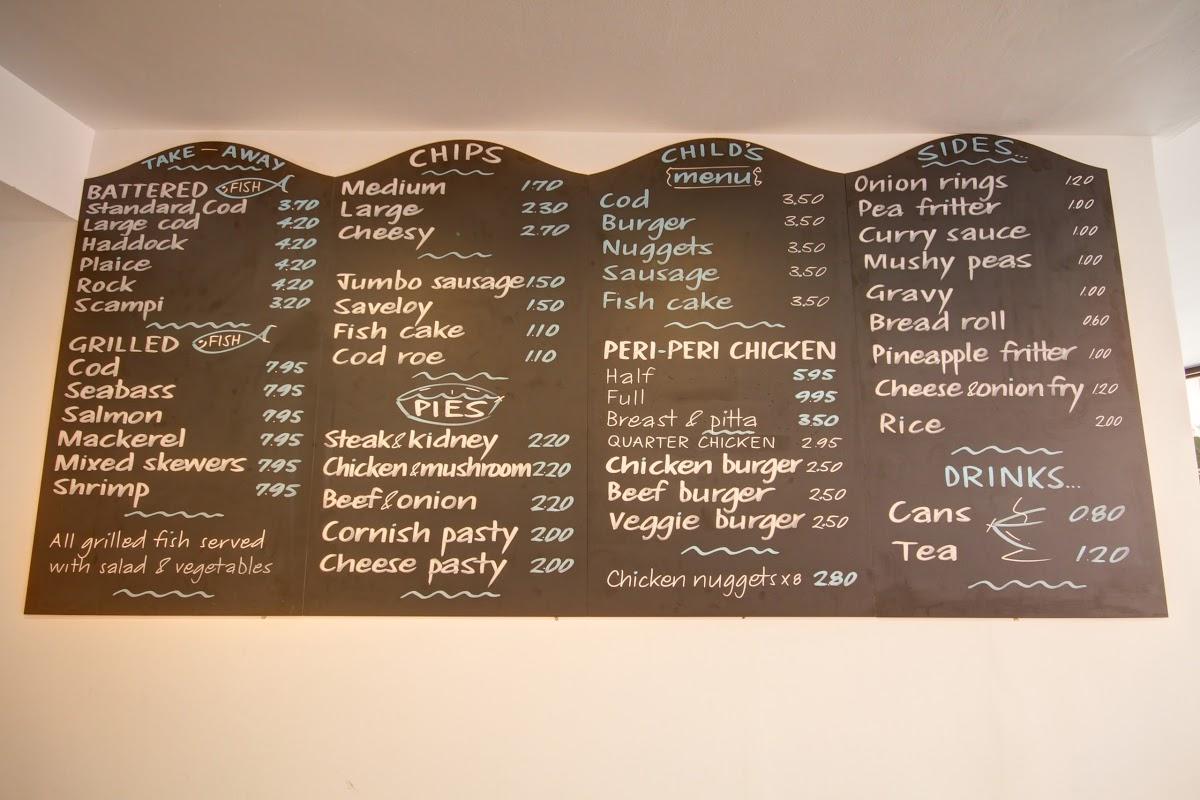 TAKE-AWAY
BATTERED FISH
Standard Cod 3.70
Large cod 4.20
Haddock 4.20
Plaice 4.20
Rock 4.20
Scampi 3.20
GRILLED FISH
Cod 7.95
Seabass 7.95
Salmon 7.95
Mackerel 7.95
Mixed skewers 7.95
Shrimp 7.95
All grilled fish served
with salad & vegetables
CHIPS
Medium 1.70
Large 2.30
Cheesy 2.70
Jumbo sausage 1.50
Saveloy 1.50
Fish cake 1.10
Cod roe 1.10
PIES
Steak & kidney 2.20
Chicken & mushroom 2.20
Beef & onion 2.20
Cornish pasty 2.00
Cheese pasty 2.00
CHILD'S
menu
Cod 3.50
Burger 3.50
Nuggets 3.50
Sausage 3.50
Fish cake 3.50
PERI-PERI CHICKEN
Half 5.95
Full 9.95
Breast & pitta 3.50
QUARTER CHICKEN 2.95
Chicken burger 2.50
Beef burger 2.50
Veggie burger 2.50
Chicken nuggets x 8 2.80
SIDES...
Onion rings 1.20
Pea fritter 1.00
Curry sauce 1.00
Mushy peas 1.00
Gravy 1.00
Bread roll 0.60
Pineapple fritter 1.00
Cheese & onion fry 1.20
Rice 2.00
DRINKS...
Cans 0.80
Tea 1.20